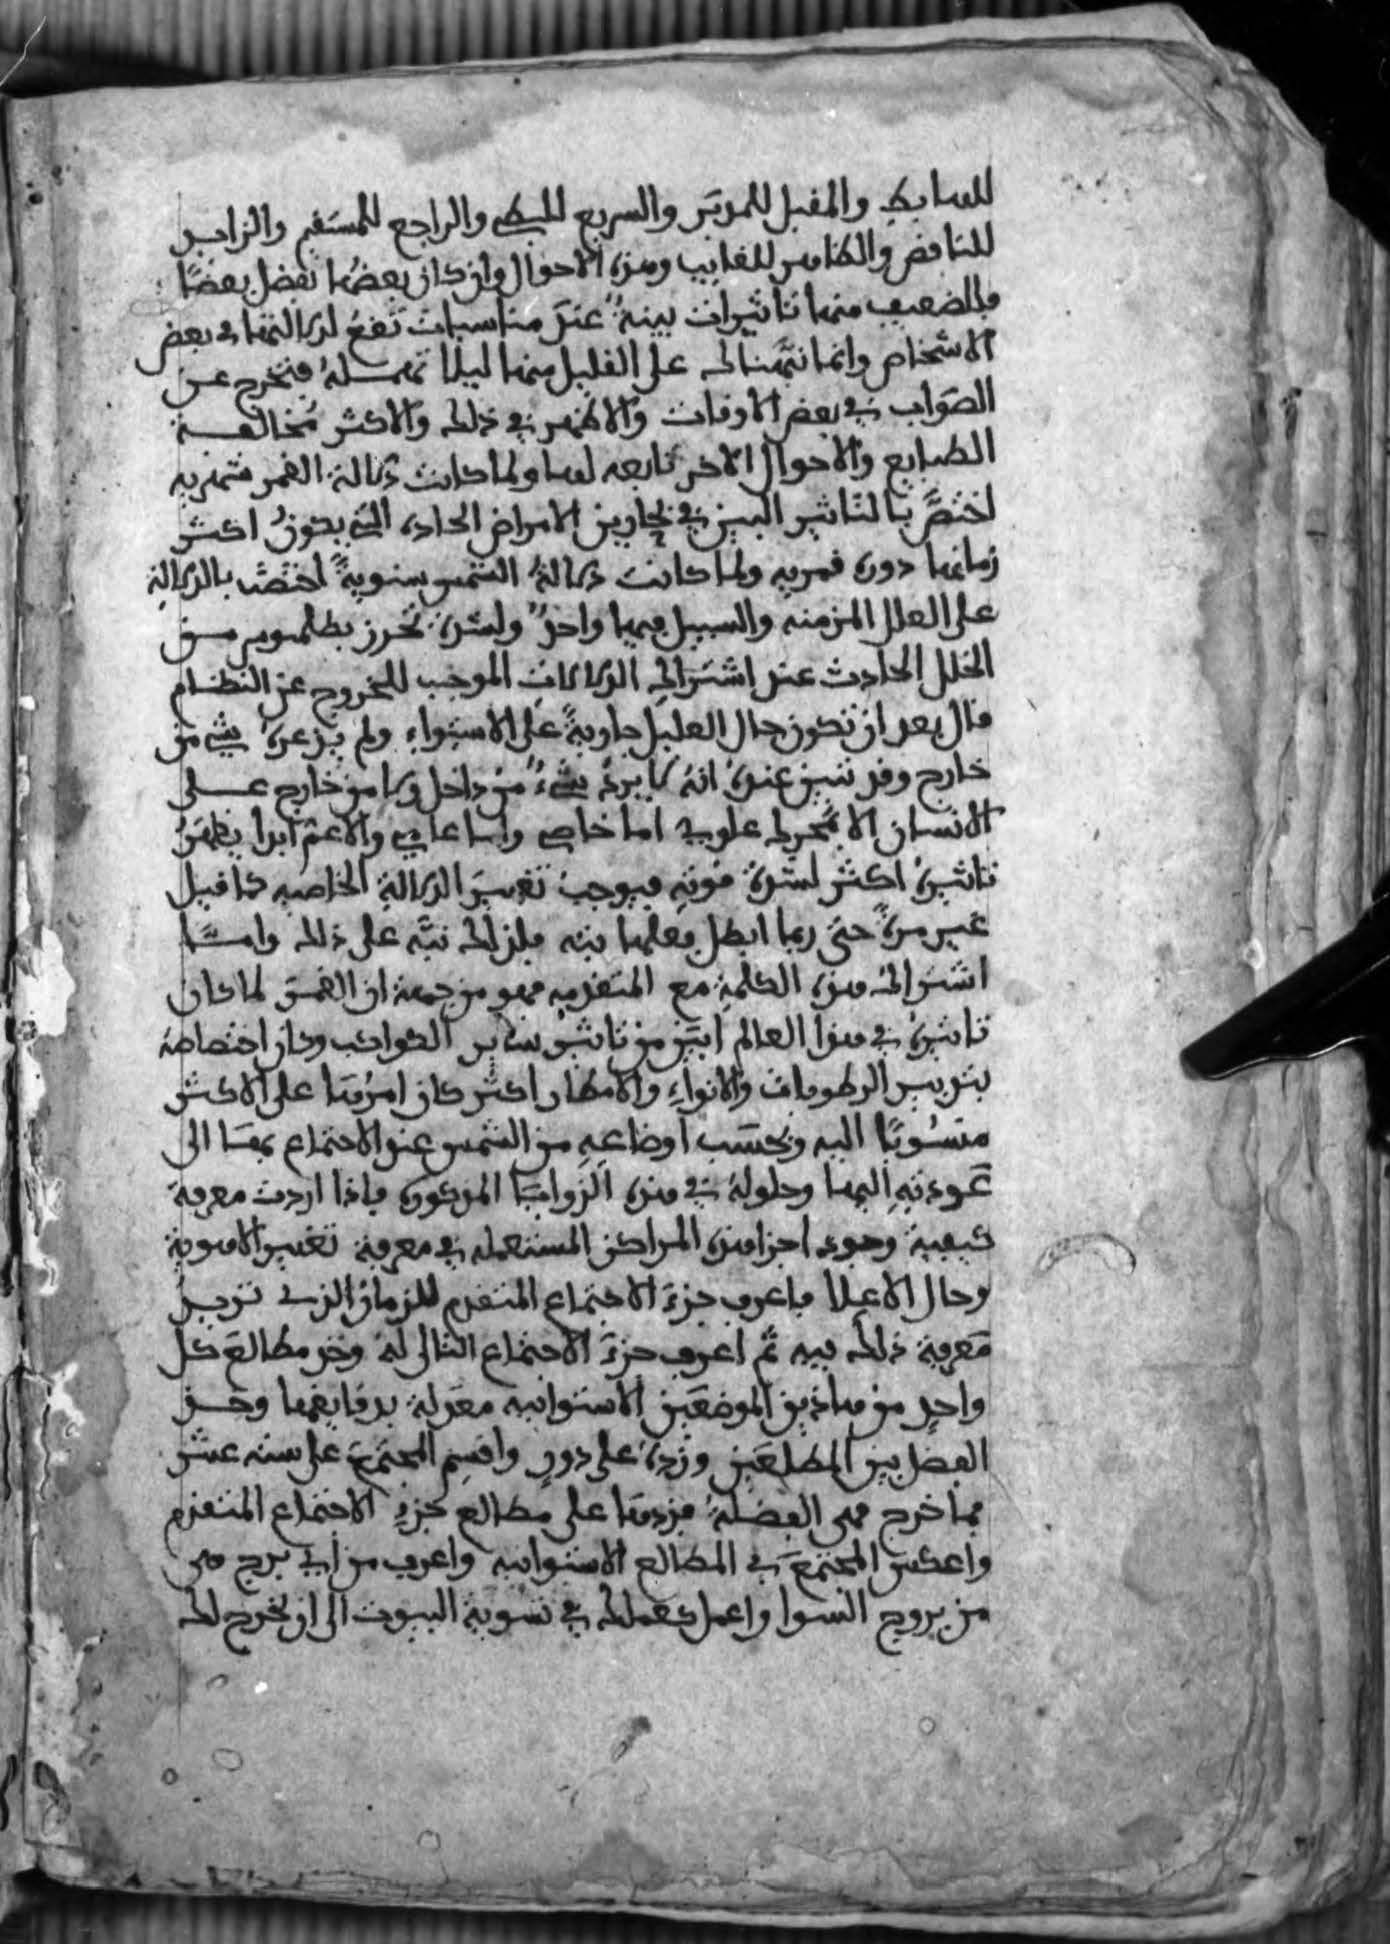 للهابط والمقبل للمدبر والسريع للبطي والراجع للمستقيم والزايد
للناقص والظاهر للغايب وهذه الاحوال وان كان بعضها تفضل بعضًا
فللضعيف منها تاثيرات بينة عند مناسبات تقع لدلالتها في بعض
الاشخاص وانما نبهناك على القليل منها ليلا تهمله فتخرج عن
الصواب في بعض الاوقات والاظهر في ذلك والاكثر مخالفة
الطبايع والاحوال الاخر تابعه لها ولما كانت دلالة القمر شهريه
اختصّ بالتاثير البين في بحارين الامراض الحاده التي يكون اكثر
زمانها دوره قمريه ولما كانت دلالة الشمس سنوية اختصت بالدلالة
على العلل المزمنه والسبيل فيها واحد ولشده تحرز بطلميوس من
الخلل الحادث عند اشتراك الدلالات الموجب للخروج عن النظام
قال بعد ان تكون حال العليل جارية على الاستواء ولم يزعه شي من
خارج وقد تبين عنده انه لا يرد شيء من داخل ولا من خارج على
الانسان الا بمحرك علوي اما خاص واما عام والاعم ابدا يظهر
تاثيره اكثر لشدة قوته فيوجب تغيير الدلالة الخاصيه كما قيل
غير مرة حتى ربما ابطل فعلها بته فلذلك نبّه على ذلك وامّا
اشتراك هذه الكلمة مع المتقدمه فهو من جهة ان القمر لما كان
تاثيره في هذا العالم ابين من تاثير ساير الكواكب وكان اختصاصه
بتدبير الرطوبات والانواء والامطار اكثر كان امرها على الاكثر
منسوبًا اليه وبحسب اوضاعه من الشمس عند الاجتماع بها الى
عودته اليها وحلوله في هذه الزوايا المذكوره فاذا اردت معرفة
كيفية وجود اجزا هذه المراكز المستعمله في معرفة تغيير الاهوية
وحال الاعلا فاعرف جزء الاجتماع المتقدم للزمان الذي تريد
معرفة ذلك فيه ثم اعرف جزء الاجتماع التالى له وخذ مطالع كل
واحد من هاذين الموضعين الاستوائيه معدلة بدقايقها وخذ
الفضل بين المطلعين وزده على دور واقسم المجتمع على ستة عشر
فما خرج فهى الفضلة فزدها على مطالع جزء الاجتماع المتقدم
واعكس المجتمع في المطالع الاستوائيه واعرف من اي برج هى
من بروج السوا واعمل كعملك في تسوية البيوت الى ان يخرج لك